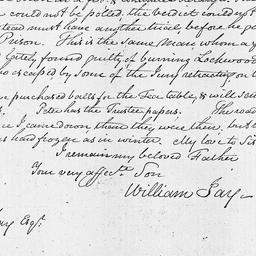 could not be polled, the verdict could not
stead must have another trial, before he go
Prison. This is the same Man whom a J
lately found guilty of burning Lockwood
who escaped by some of the Jury retracting on t
purchased balls for the Tea table, & will sen
Peter has the Trustee papers. The road
I came down them they were them, but
as hard frozen as in winter. My love to Sis
I remain my beloved Father
Your very affecte. Son
William Jay
ay Esqr.